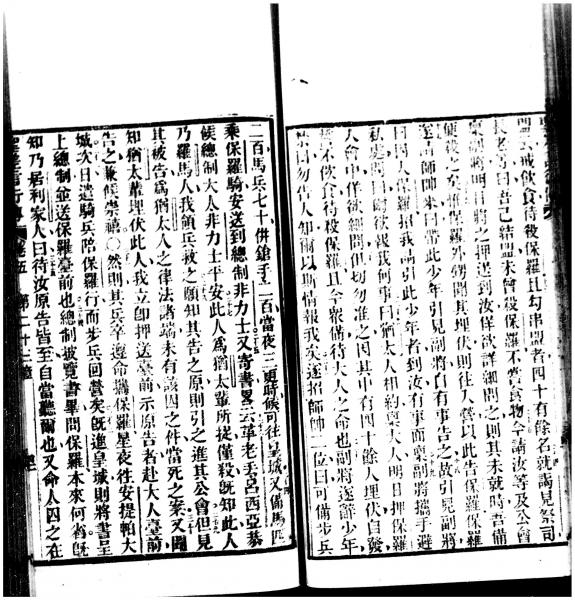 盟云戒飲食待殺保羅且勾串盟者四十有餘名就謁見祭司
長老等曰吾己結盟未曾殺保羅不嘗食物今請汝等及公會
稟副將明日將之押送到汝佯欲詳細問之則其未就時吾備
便殺之矣惟保羅外甥聞其埋伏則往入營以此告保羅保羅
遂請師帥來曰帶此少年引見副將白有事告之故引見副將
曰囚人保羅招我請引此少年者到汝有事面稟副將攜手避
私處問曰爾欲報我何事曰猶太人相約稟大人明日押保羅
入會中佯欲細問但切勿准之因其中有四十餘人埋伏自發
誓不飲食待殺保羅且今眾備待大人之命也副將遂辭少年
禁曰勿告人知爾以斯情報我矣遂招師帥二位曰可備步兵
二百馬兵七十併鎗手二百當夜三更時候可往皇城又備馬匹
乘保羅騎安送到總制非力士又寄書畧云革老丟呂西亞恭
候總制大人非力士平安此人爲猶太輩所捉僅殺既知此人
乃羅馬人我領兵救之願知其告之原則引之進其公會但見
其被告爲猶太人之律法諸端未有該囚之件當死之案又聞
知猶太輩埋伏此人我立卽押送臺前示原告者赴大人臺前
告之兼候崇禧○然則其兵卒遵命攜保羅星夜往安提帕大
城次日遣騎兵陪保羅行而步兵回營矣既進皇城則將書呈
上總制並送保羅臺前也總制披覽書畢問保羅本來何省既
知乃基利家人曰待汝原告皆至自當聽爾也又命人囚之在
卷五 第二十三章